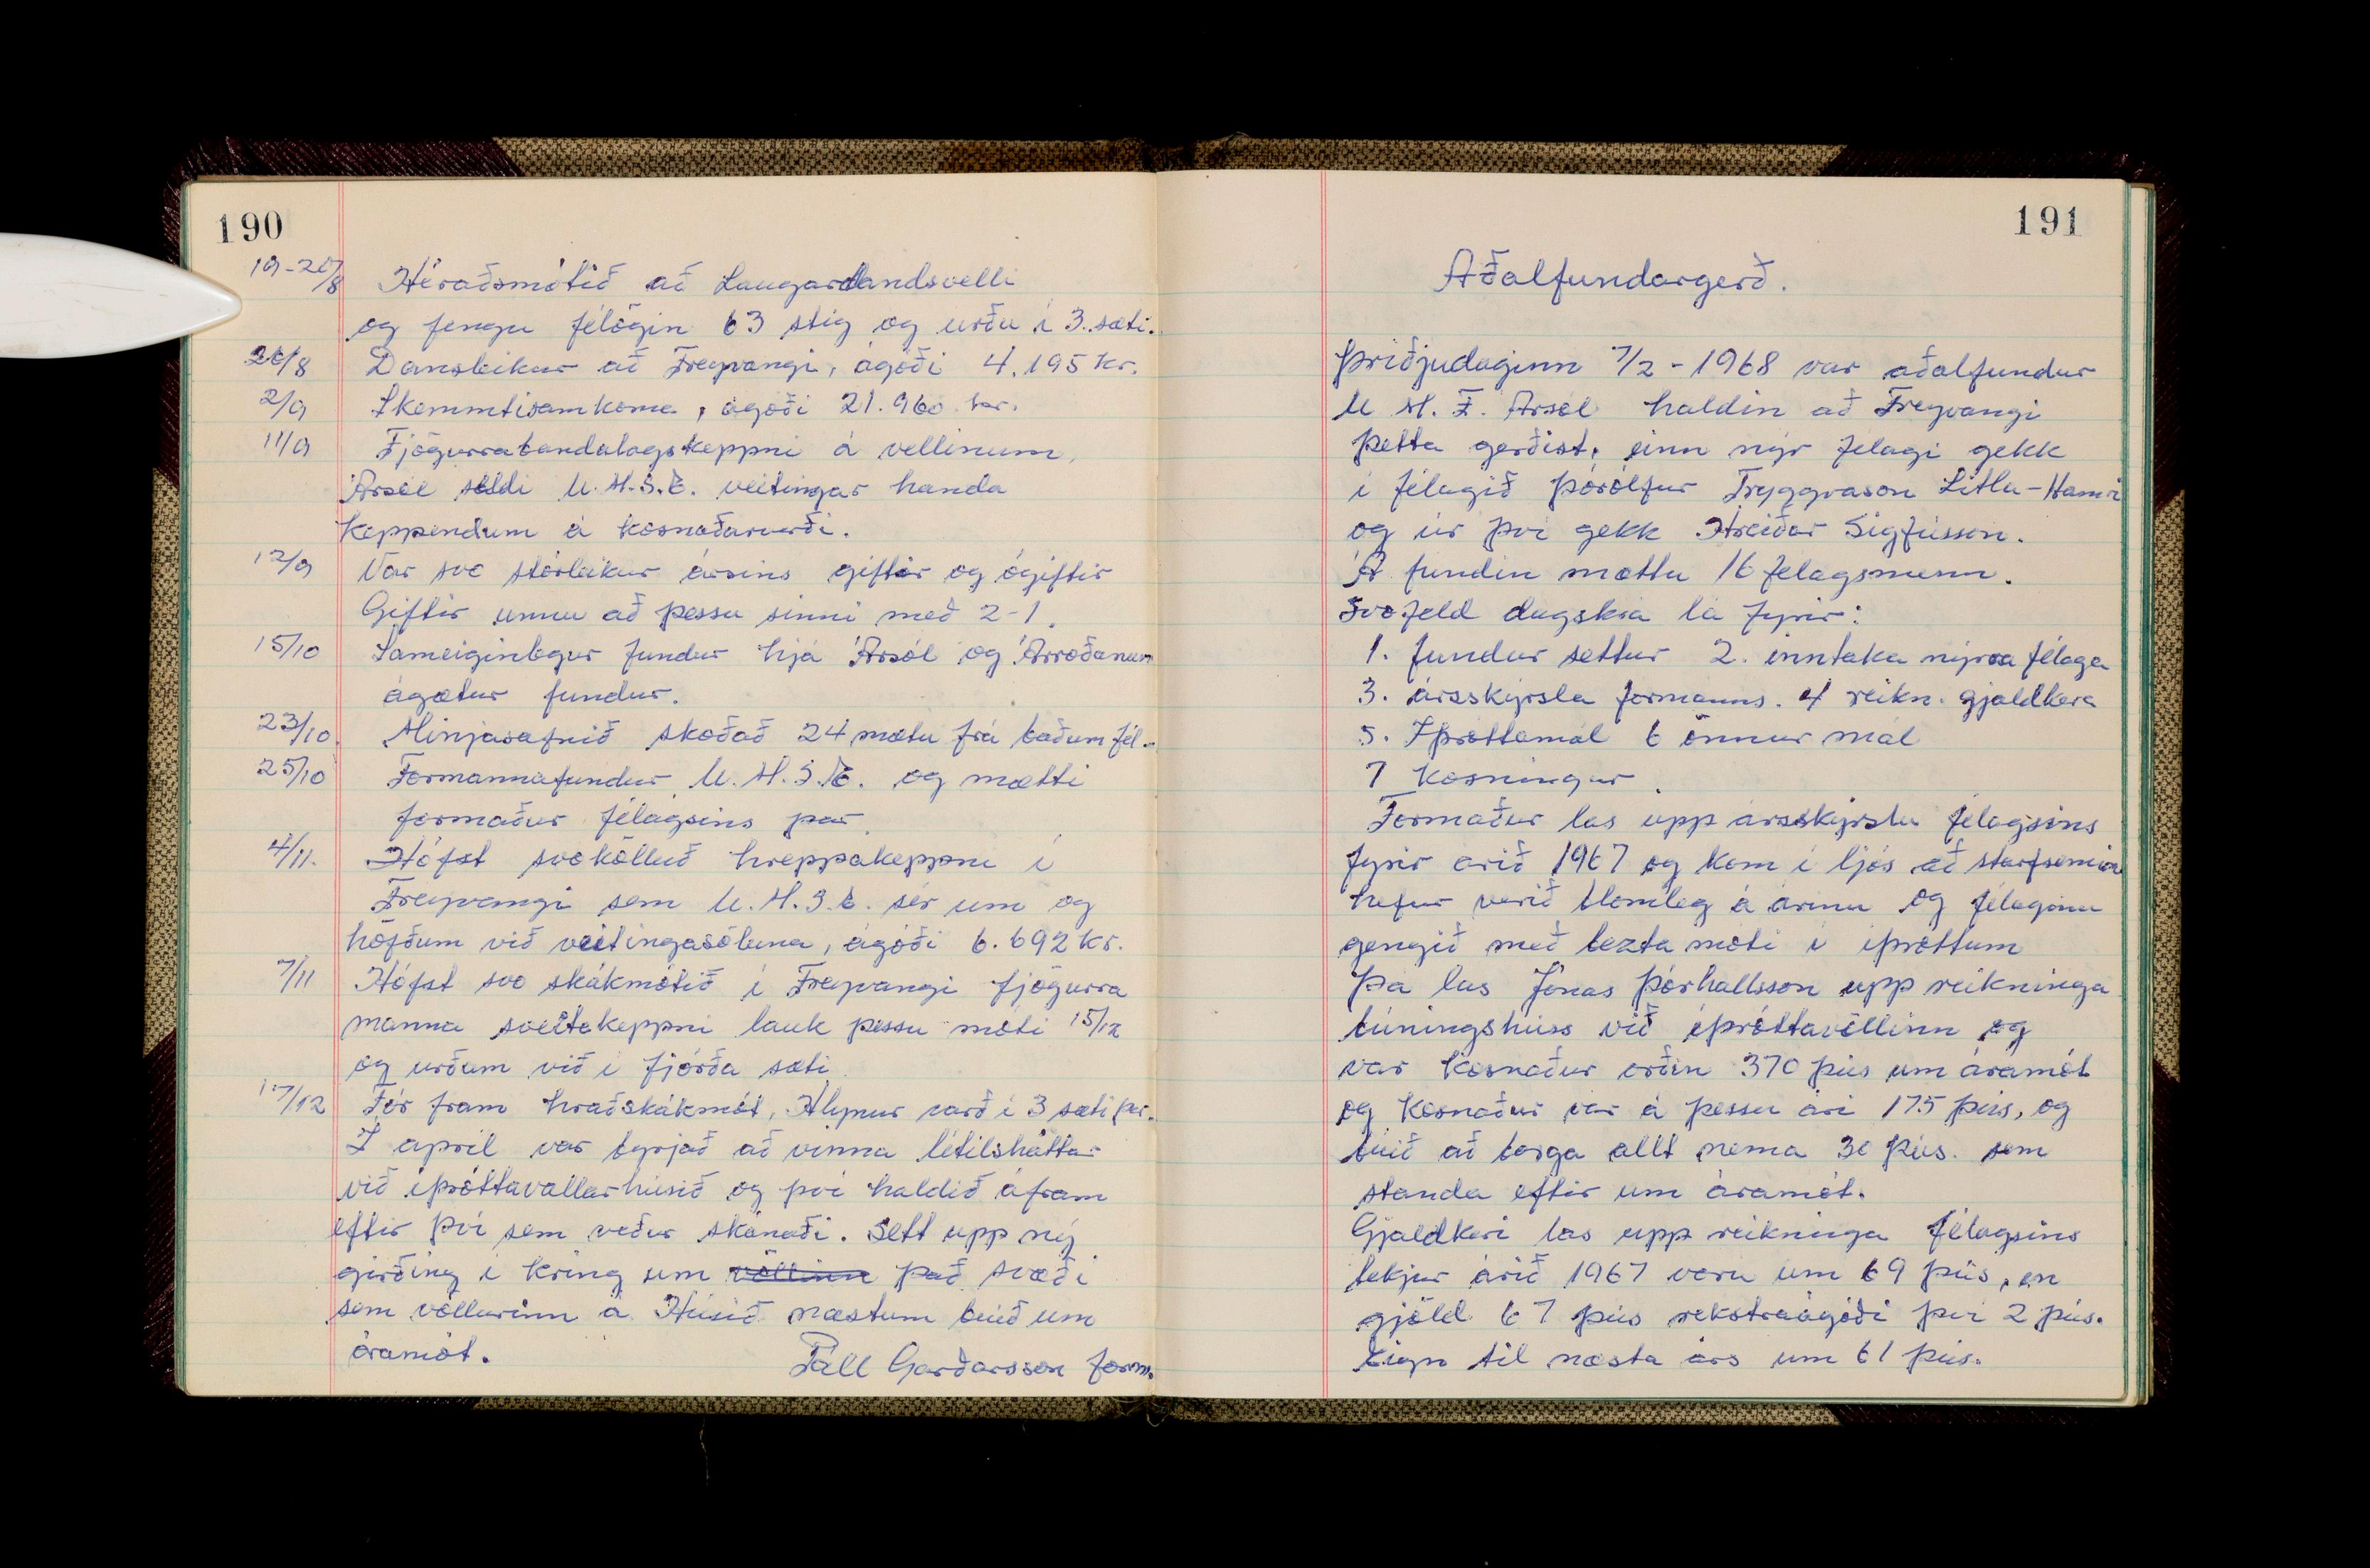 190
19-20/8 Héraðsmótið að Laugarlandsvelli
og fengu félögin 63 stig og urðu í 3. sæti.
26/8 Dansleikur að Freyvangi, ágóði 4.195 kr.
2/9 Skemmtisamkoma, ágóði 21.960 kr.
11/9 Fjögurrabandalagskeppni á vellinum,
Ársól seldi U.M.S.E. veitingar handa
keppendum á kosnaðarverði.
12/9 Var svo stórleikur ársins giftir og ógiftir
Giftir unnu að þessu sinni með 2-1.
15/10 Sameiginlegur fundur hjá Ársól og Árroðanum
ágætur fundur.
23/10 Minjasafnið skoðað 24 mætu frá báðum fél.
25/10 Formannafundur U.M.S.E. og mætti
formaður félagsins þar.
4/11. Hófst svokölluð hreppakeppni í
Freyvangi sem U.M.S.E. sér um og
höfðum við veitingasöluna, ágóði 6.692 kr.
7/11 Hófst svo skákmótið í Freyvangi fjögurra
manna sveitakeppni lauk þessu móti 15/12
og urðum við í fjórða sæti.
17/12 Fór fram hraðskákmót, varð í 3 sæti þar.
I april var byrjað að vinna lítilsháttar
við íþróttavallarhúsið og því haldið áfram
eftir því sem veður skánaði. Sett upp ný
girðing í kring um völlinn það svæði
sem völlurinn á. Húsið næstum búið um
áramót.
Páll Garðarsson form.
191
Aðalfundargerð.
Þriðjudaginn 7/2-1968 var aðalfundur
U.M.F. Arsól haldin að Freyvangi
þetta gerðist, einn nýr félagi gekk
í félagið Þórólfur Tryggvason Litla-Hamri
og úr því gekk Hreiðar Sigfússon.
Á fundin mættu 16 félagsmenn.
Svofeld dagskrá lá fyrir:
1. fundur settur 2. inntaka nýrra félaga
3. ársskýrsla formanns. 4 reikn. gjaldkera
5. Iþróttamál 6 önnur mál
7 Kosningar.
Formaður las upp ársskýrslu félagsins
fyrir árið 1967 og kom í ljós að starfsemin
hefur verið blómleg á árinu og félaginu
gengið með bezta móti í íþróttum
Þá las Jónas Þórhallsson upp reikninga
búningshúss við íþróttavöllinn og
var kosnaður orðin 370 þús um áramót
og kosnaður var á þessu ári 175 þús, og
búið að borga allt nema 30 þús. sem
standa eftir um áramót.
Gjaldkeri las upp reikninga félagsins
tekjur árið 1967 voru um 69 þús, en
gjöld 67 þús rekstraágóði því 2 þús.
Eign til næsta árs um 61 þús.